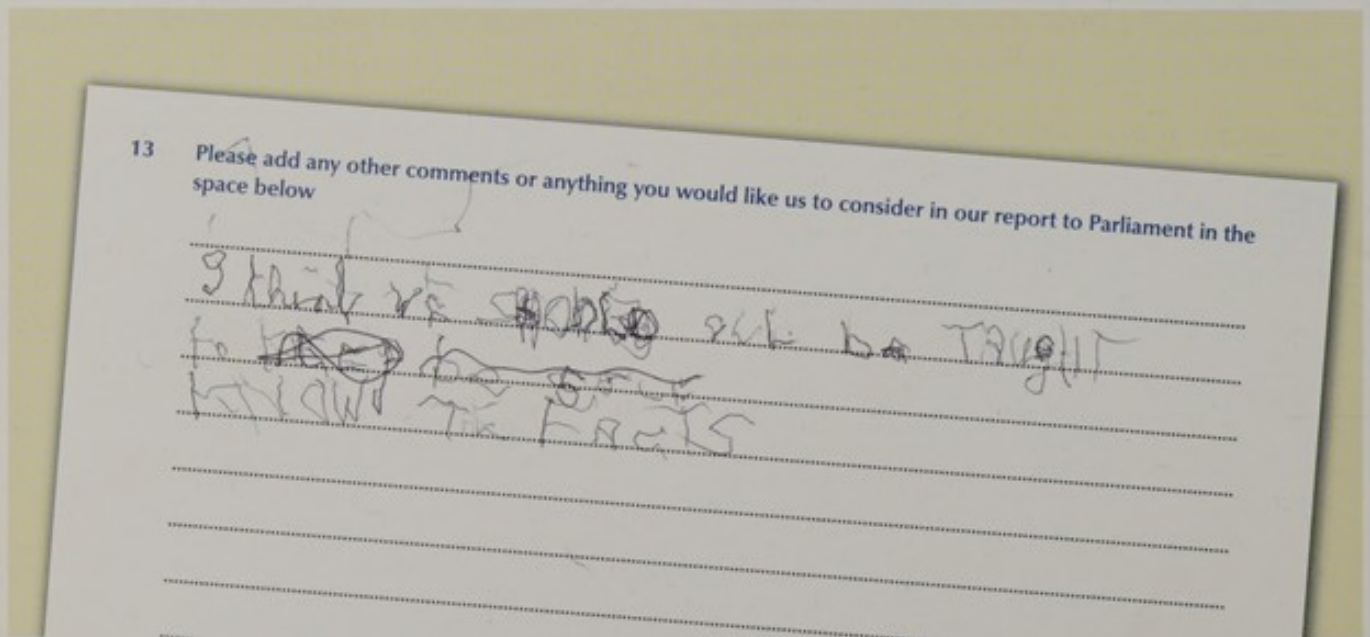 13 Please add any other comments or anything you would like us to consider in our report to Parliament in the
space below
I think be TAUghT
to
KNOW THE FACTS